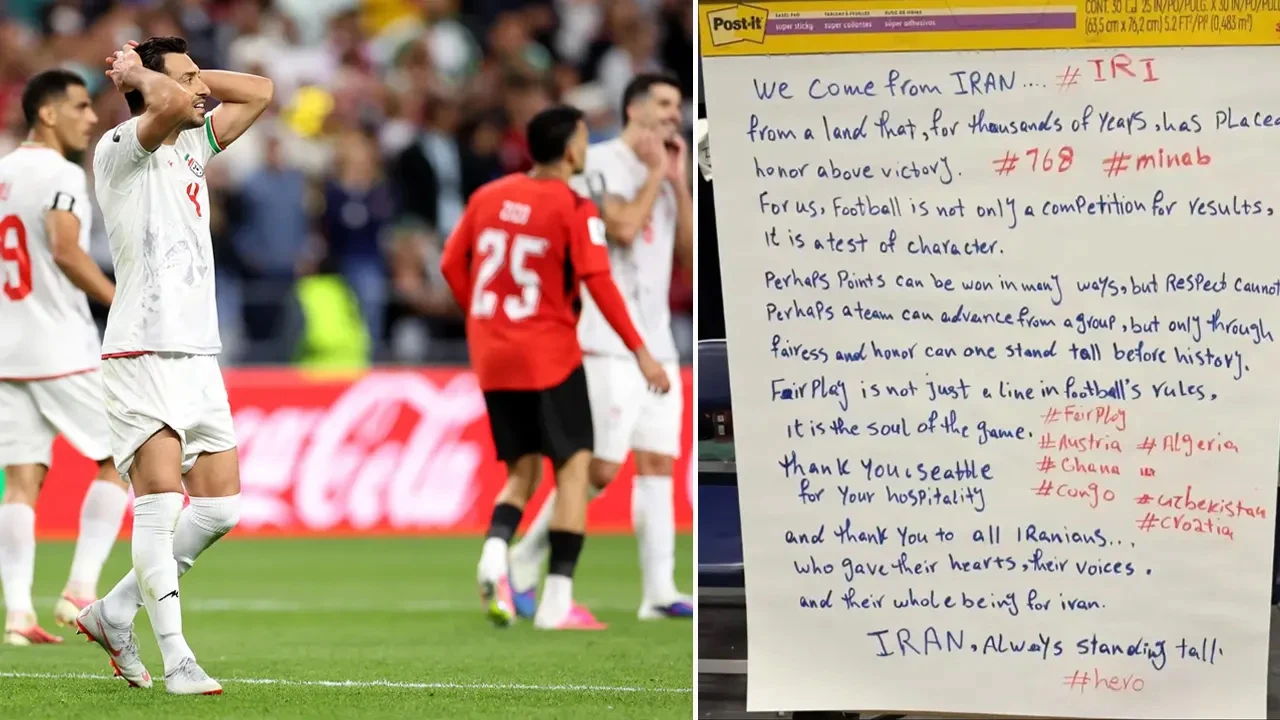 9
4
ZICO
25
Coca-Cola
Post-it
EASEL PAD
super sticky
TABLEAU À FEUILLES
super collantes
BLOC DE HOJAS
súper adhesivos
CONT. 30 25 IN/PO/PULG. X 30 IN/PO/PUL
(63,5 cm x 76,2 cm) 5.2 FT²/PI² (0,483 m²)
We Come from IRAN.... #IRI
from a land that, for thousands of years, has Placed
honor above victory. #768 #minab
For us, Football is not only a competition for results,
it is a test of character.
Perhaps Points can be won in many ways, but Respect cannot
Perhaps a team can advance from a group, but only through
fairess and honor can one stand tall before history.
Fair Play is not just a line in football's rules,
it is the soul of the game. #FairPlay
#Austria #Algeria
thank You, seattle #Ghana
for Your hospitality #Congo #uzbekistan
#croatia
and thank You to all IRanians...
who gave their hearts, their voices.
and their whole being for iran.
IRAN, Always standing tall.
#hero